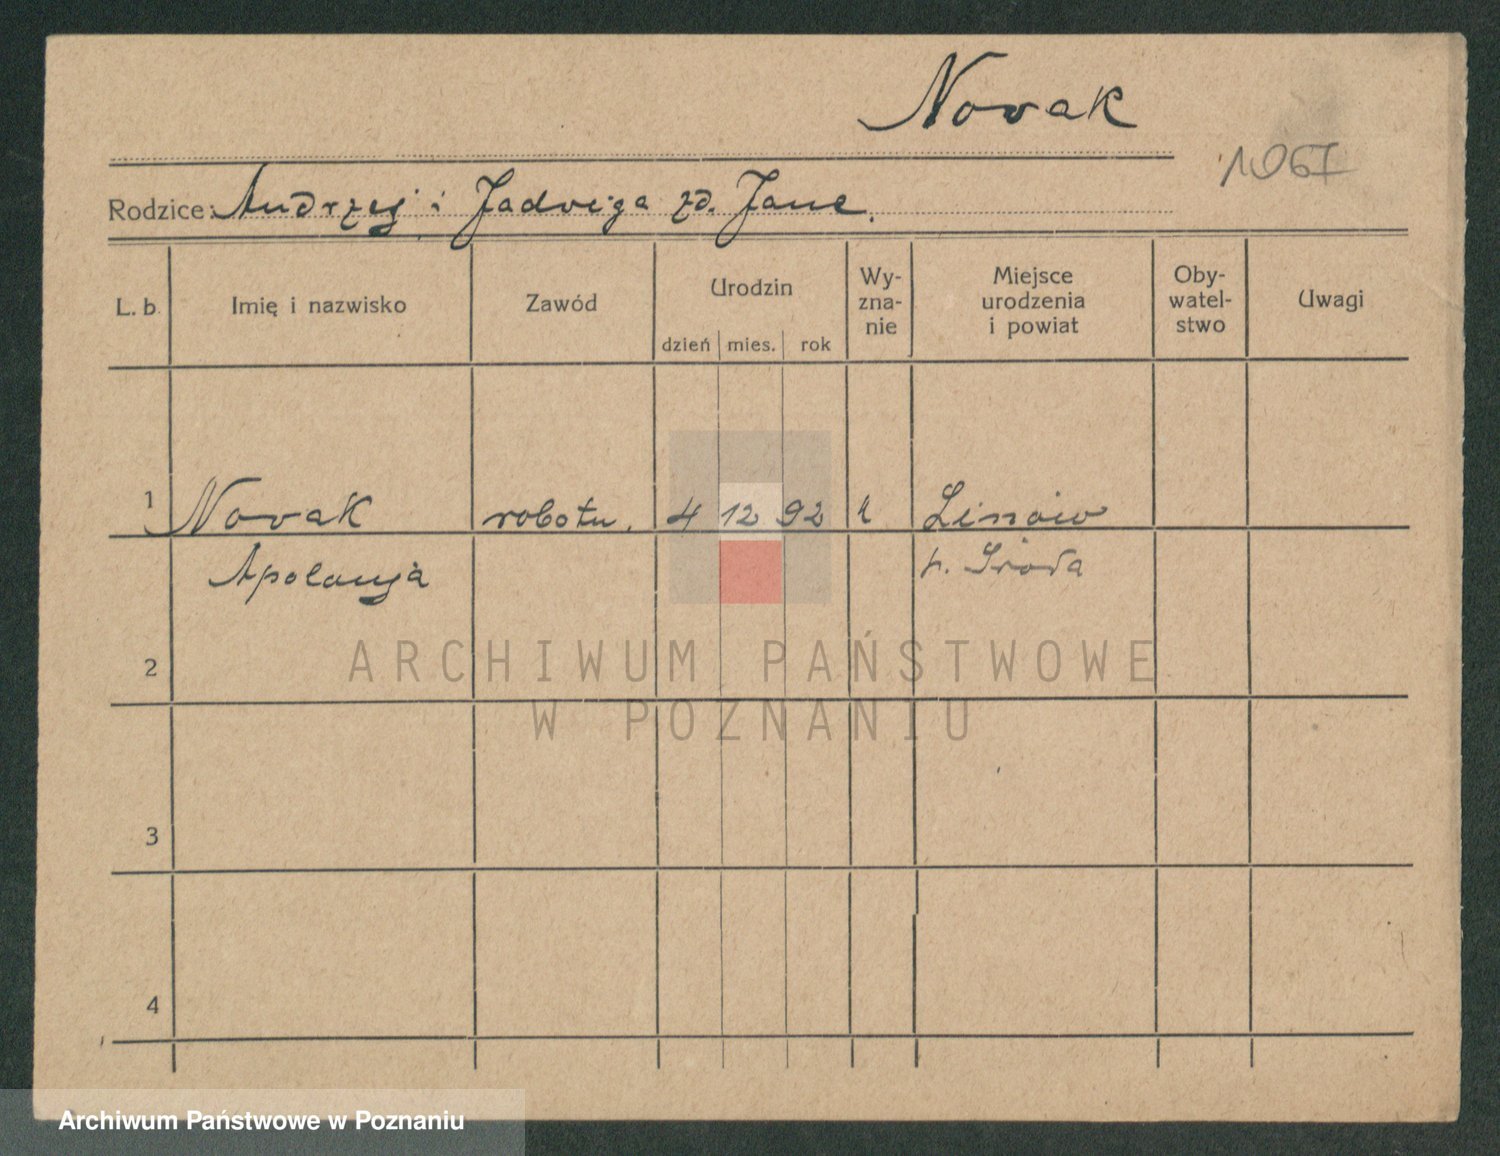 Novak
1967
Rodzice: Andrzej i Jadviga zd. Jane.
L. b. Imię i nazwisko Zawód Urodzin dzień mies. rok Wy-zna-nie Miejsce urodzenia i powiat Oby-watel-stwo Uwagi
1 Novak robotn. 4 12 92 k
Apolonja p. Środa
2
ARCHIWUM PAŃSTWOWE
W POZNANIU
3
4
Archiwum Państwowe w Poznaniu